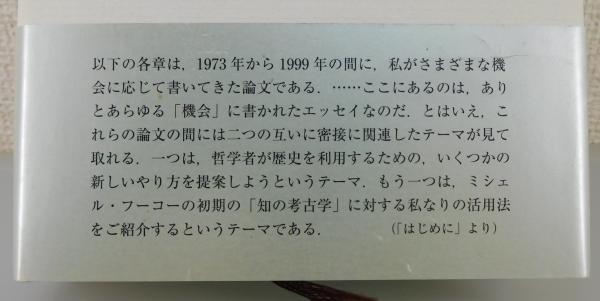 以下の各章は，1973年から1999年の間に，私がさまざまな機
会に応じて書いてきた論文である．……ここにあるのは，あり
とあらゆる「機会」に書かれたエッセイなのだ．とはいえ，こ
れらの論文の間には二つの互いに密接に関連したテーマが見て
取れる．一つは，哲学者が歴史を利用するための，いくつかの
新しいやり方を提案しようというテーマ．もう一つは，ミシェ
ル・フーコーの初期の「知の考古学」に対する私なりの活用法
をご紹介するというテーマである．　（「はじめに」より）